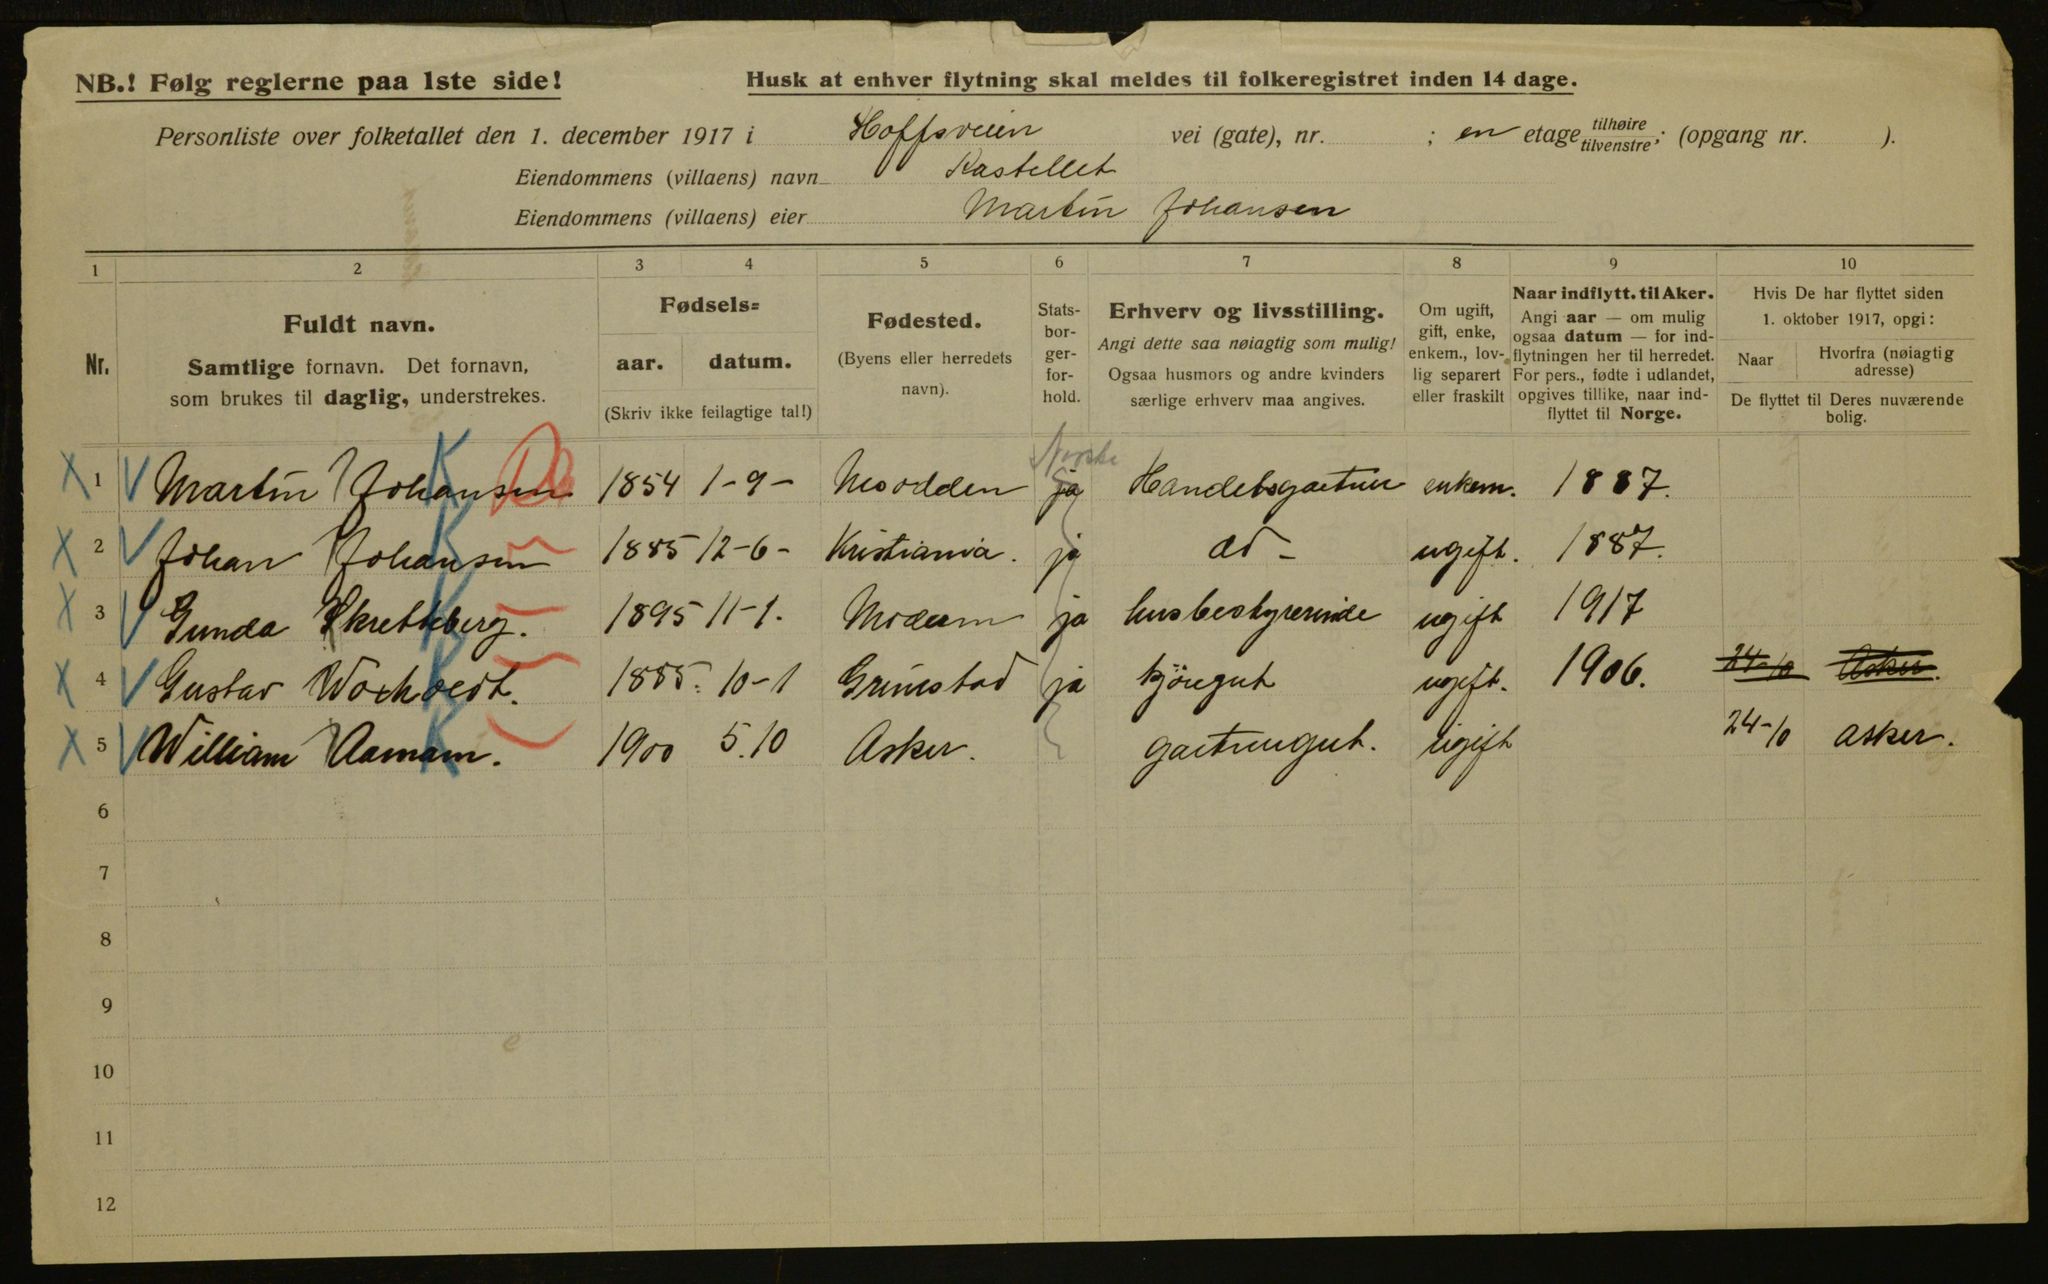 NB.! Følg reglerne paa 1ste side!
Husk at enhver flytning skal meldes til folkeregistret inden 14 dage.
Personliste over folketallet den 1. december 1917 i Hoffsveien vei (gate), nr. ; en etage tilhøire tilvenstre; (opgang nr. ).
Eiendommens (villaens) navn Kastellet
Eiendommens (villaens) eier Martin Johansen
1 2 3 4 5 6 7 8 9 10
Nr.
Fuldt navn.
Samtlige fornavn. Det fornavn,
som brukes til daglig, understrekes.
Fødsels=
aar. datum.
(Skriv ikke feilagtige tal!)
Fødested.
(Byens eller herredets
navn).
Stats-
bor-
ger-
for-
hold.
Erhverv og livsstilling.
Angi dette saa nøiagtig som mulig!
Ogsaa husmors og andre kvinders
særlige erhverv maa angives.
Om ugift,
gift, enke,
enkem., lov-
lig separert
eller fraskilt
Naar indflytt. til Aker.
Angi aar — om mulig
ogsaa datum — for ind-
flytningen her til herredet.
For pers., fødte i udlandet,
opgives tillike, naar ind-
flyttet til Norge.
Hvis De har flyttet siden
1. oktober 1917, opgi:
Naar
Hvorfra (nøiagtig
adresse)
De flyttet til Deres nuværende
bolig.
Norske
X 1 V Martin Johansen K 1854 1-9- Nesodden ja Handelsgartner enkem. 1887.
X 2 V Johan Johansen K 1885 12-6- Kristiania. ja do - ugift. 1887.
X 3 V Gunda Skretteberg. K 1895 11-1. Modum ja husbestyrerinde ugift 1917
X 4 V Gustav K 1885. 10-1 Grimstad ja kjöregut ugift. 1906. 24-10 Asker.
X 5 V William Aamam. K 1900 5.10 Asker. gartnergut. ugift 24-10 Asker.
6
7
8
9
10
11
12